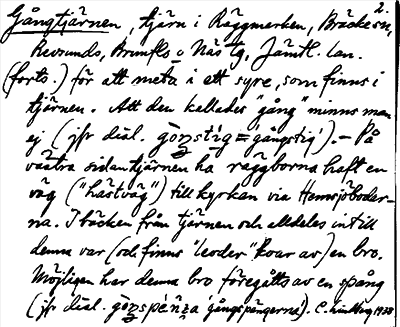 2.
Gångtjärnen, tjärn i Räggmarken, Bräcke sn,
Revsunds, Brunflo o Näs tg, Jämtl. län.
(forts.) för att meta i ett syre, som finns i
tjärnen. Att den kallades "gång" minns man
ej (jfr dial. gɔŋstig = 'gångstig'). – På
västra sidan tjärnen ha räggborna haft en
väg ("hästväg") till kyrkan via Hemsjöbodar-
na. I bäcken från tjärnen och alldeles intill
denna var (och finns "leoder" kvar av) en bro.
Möjligen har denna bro föregåtts av en spång
(jfr dial. gɔŋspɛ́nna gångspängerna'). C. Lindhag 1928